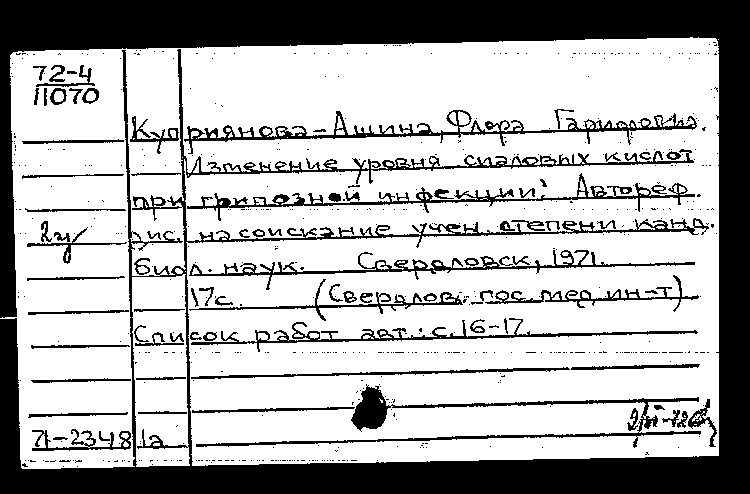 72-4
11070
Куприянова-Ашина, Флора Гариповна.
Изменение уровня сиаловых кислот
при гриппозной инфекции: Автореф.
2 ц/ дис. на соискание учен. степени канд.
биол. наук. Свердловск, 1971.
17с. (Свердлов. гос. мед. ин-т)
Список работ авт.: с. 16-17.
71-23481а